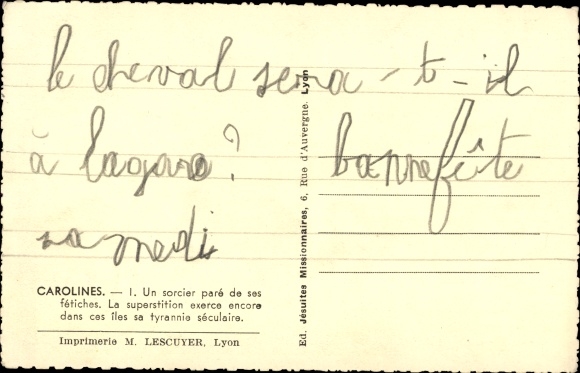 le cheval sera-t-il
à lagare ? bonnefête
samedi
CAROLINES. — 1. Un sorcier paré de ses
fétiches. La superstition exerce encore
dans ces îles sa tyrannie séculaire.
Imprimerie M. LESCUYER, Lyon
Ed. Jésuites Missionnaires, 6, Rue d'Auvergne. Lyon